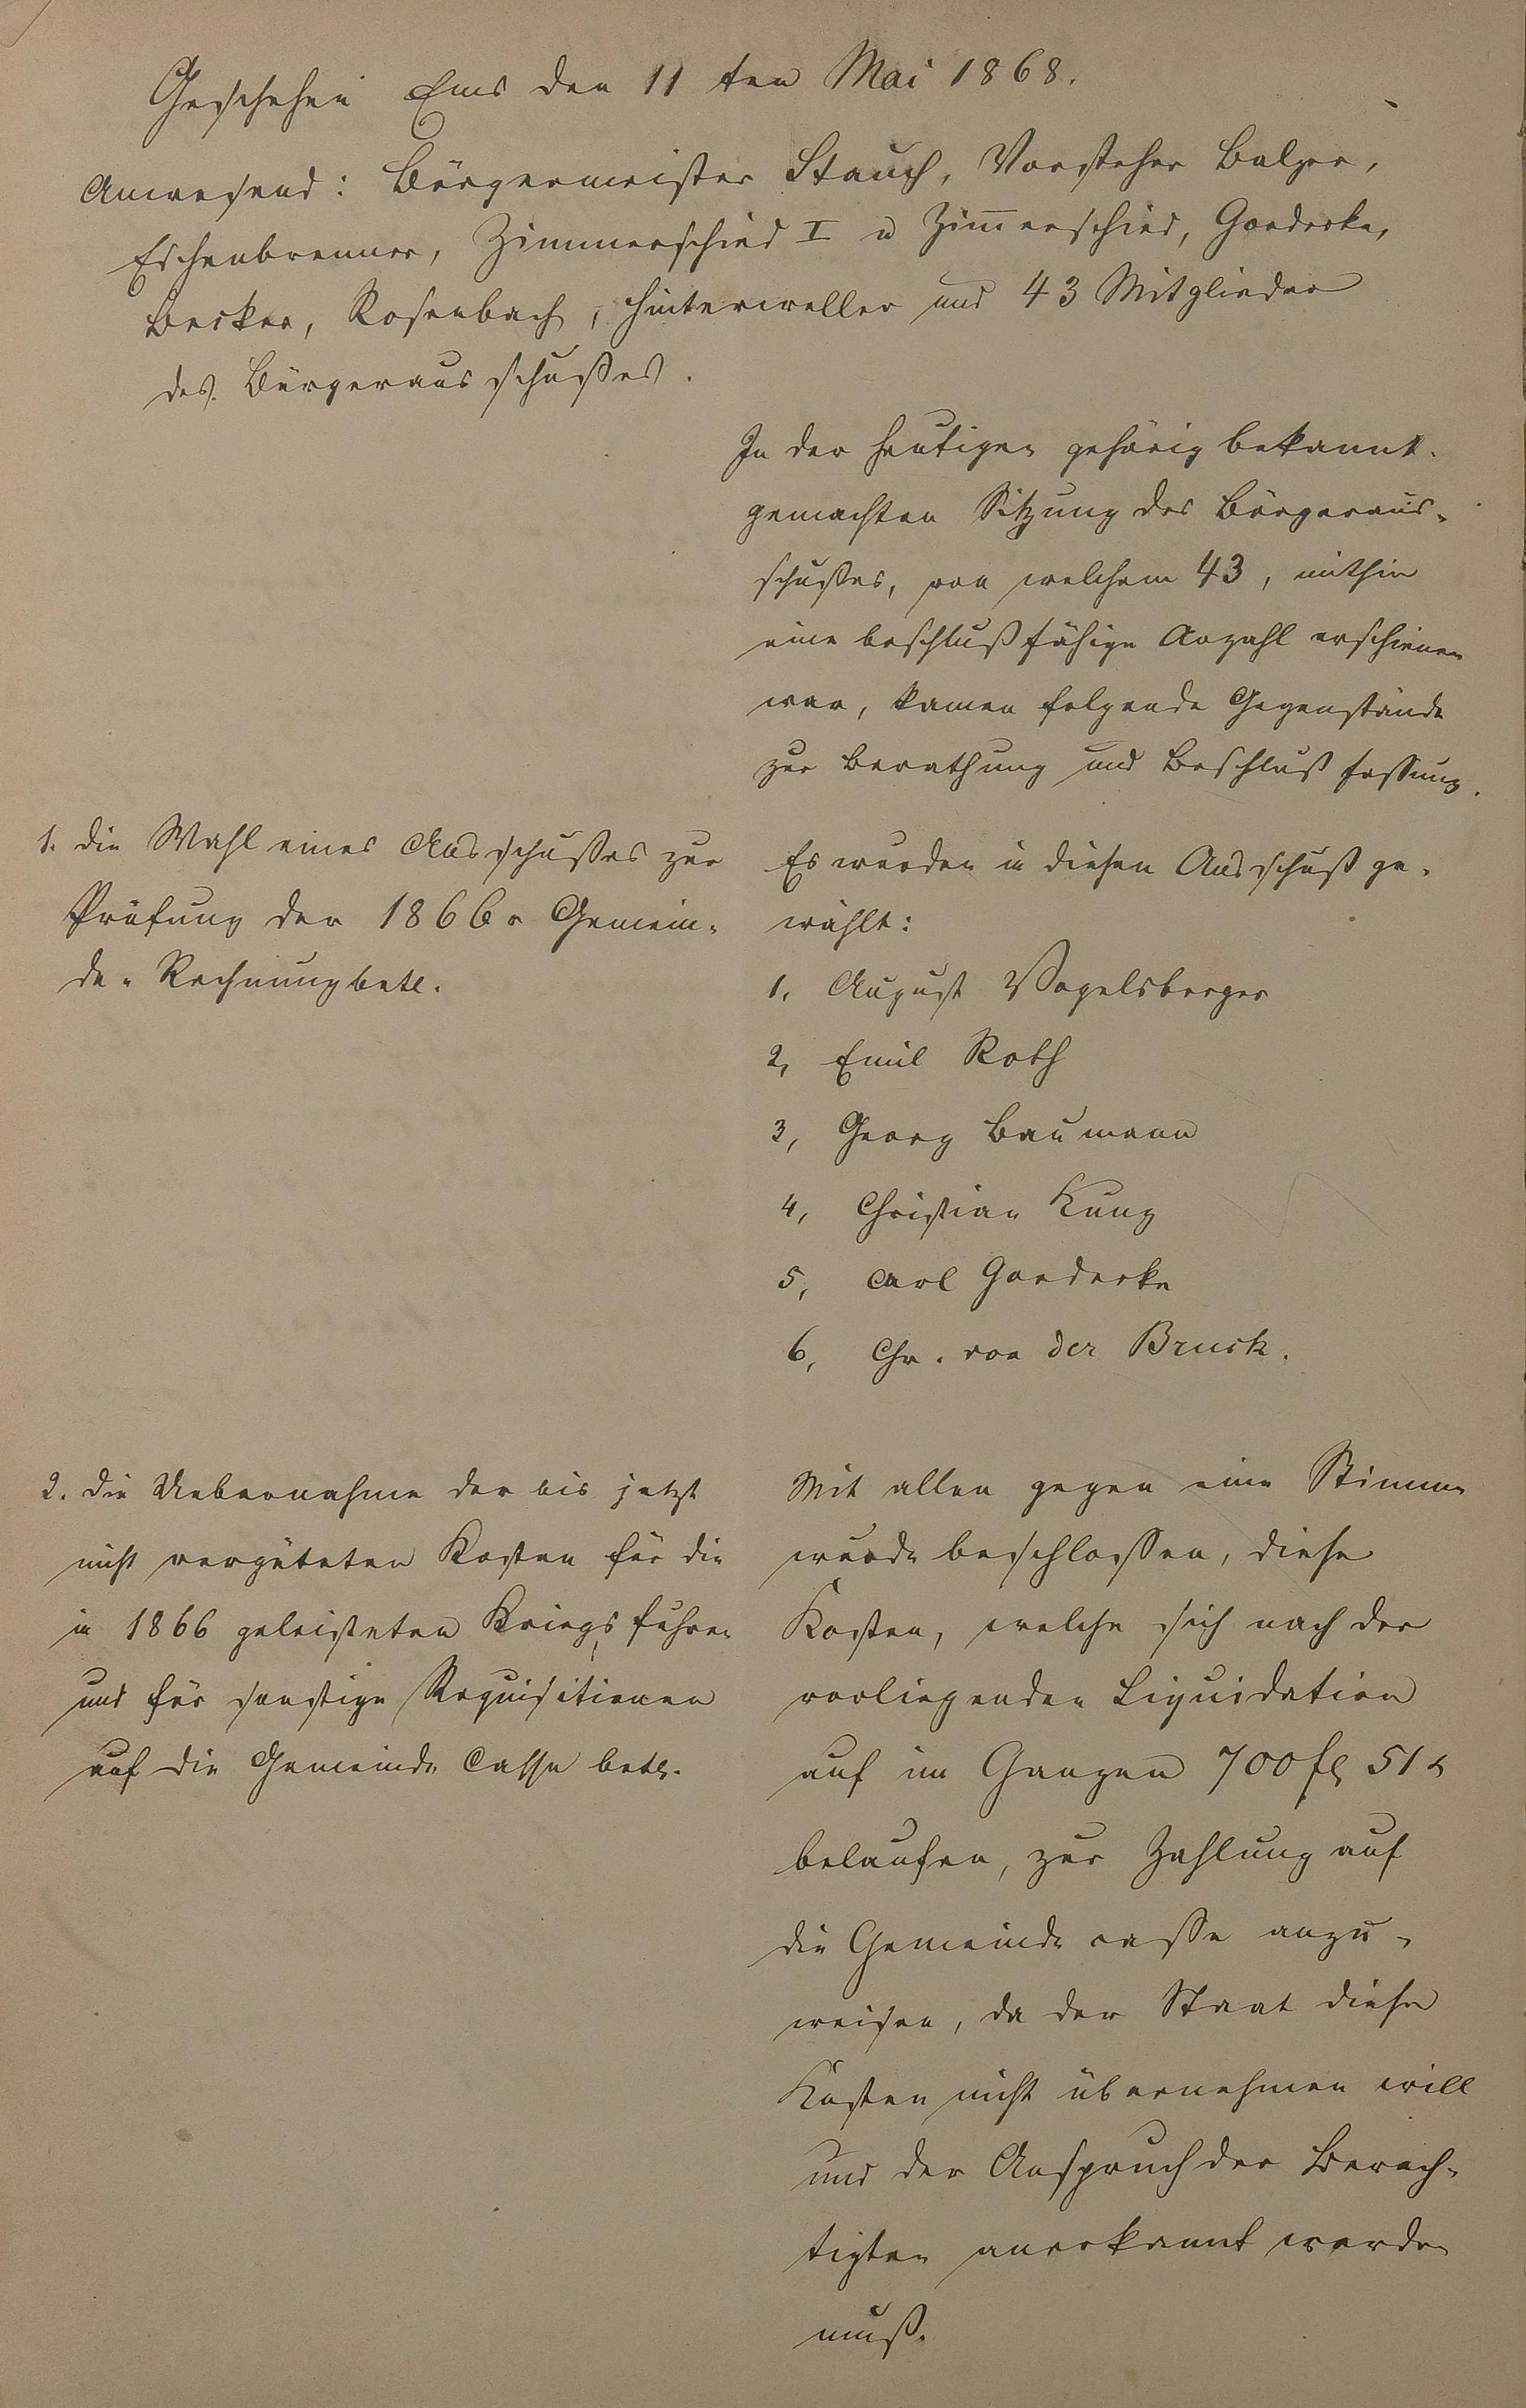 Geschehen Ems den 11 ten Mai 1868.
Anwesend: Bürgermeister Stauch, Vorsteher Balzer,
Eschenbrenner, Zimmerschied I u Zim̅erschied, Goedecke,
Becker, Rosenbach, Hinterweller und 43 Mitglieder
des Bürgerausschußes.
In der heutigen gehörig bekannt-
gemachten Sitzung des Bürgeraus-
schußes, von welchem 43, mithin
eine beschlußfähige Anzahl erschienen
war, kamen folgende Gegenstände
zur Berathung und Beschlußfassung.
1. die Wahl eines Ausschußes zur
Prüfung der 1866r Gemein-
de-Rechnung betr.
Es wurden in diesen Ausschuß ge-
wählt:
1, August Vogelsberger
2, Emil Roth
3, Georg Baumann
4, Christian Kunz
5, Carl Goedecke
6, Chr. von der Bruck.
2. die Uebernahme der bis jetzt
nicht vergüteten Kosten für die
in 1866 geleisteten Kriegsfuhren
und für sonstige Requisitionen
auf die Gemeinde Casse betr.
Mit allen gegen eine Stimme
wurde beschlossen, diese
Kosten, welche sich nach der
vorliegenden Liquidation
auf im Ganzen 700 fl 51 x
belaufen, zur Zahlung auf
die Gemeinde casse anzu-
weisen, da der Staat diese
Kosten nicht übernehmen will
und der Anspruch der Berech-
tigten anerkannt werden
muß.